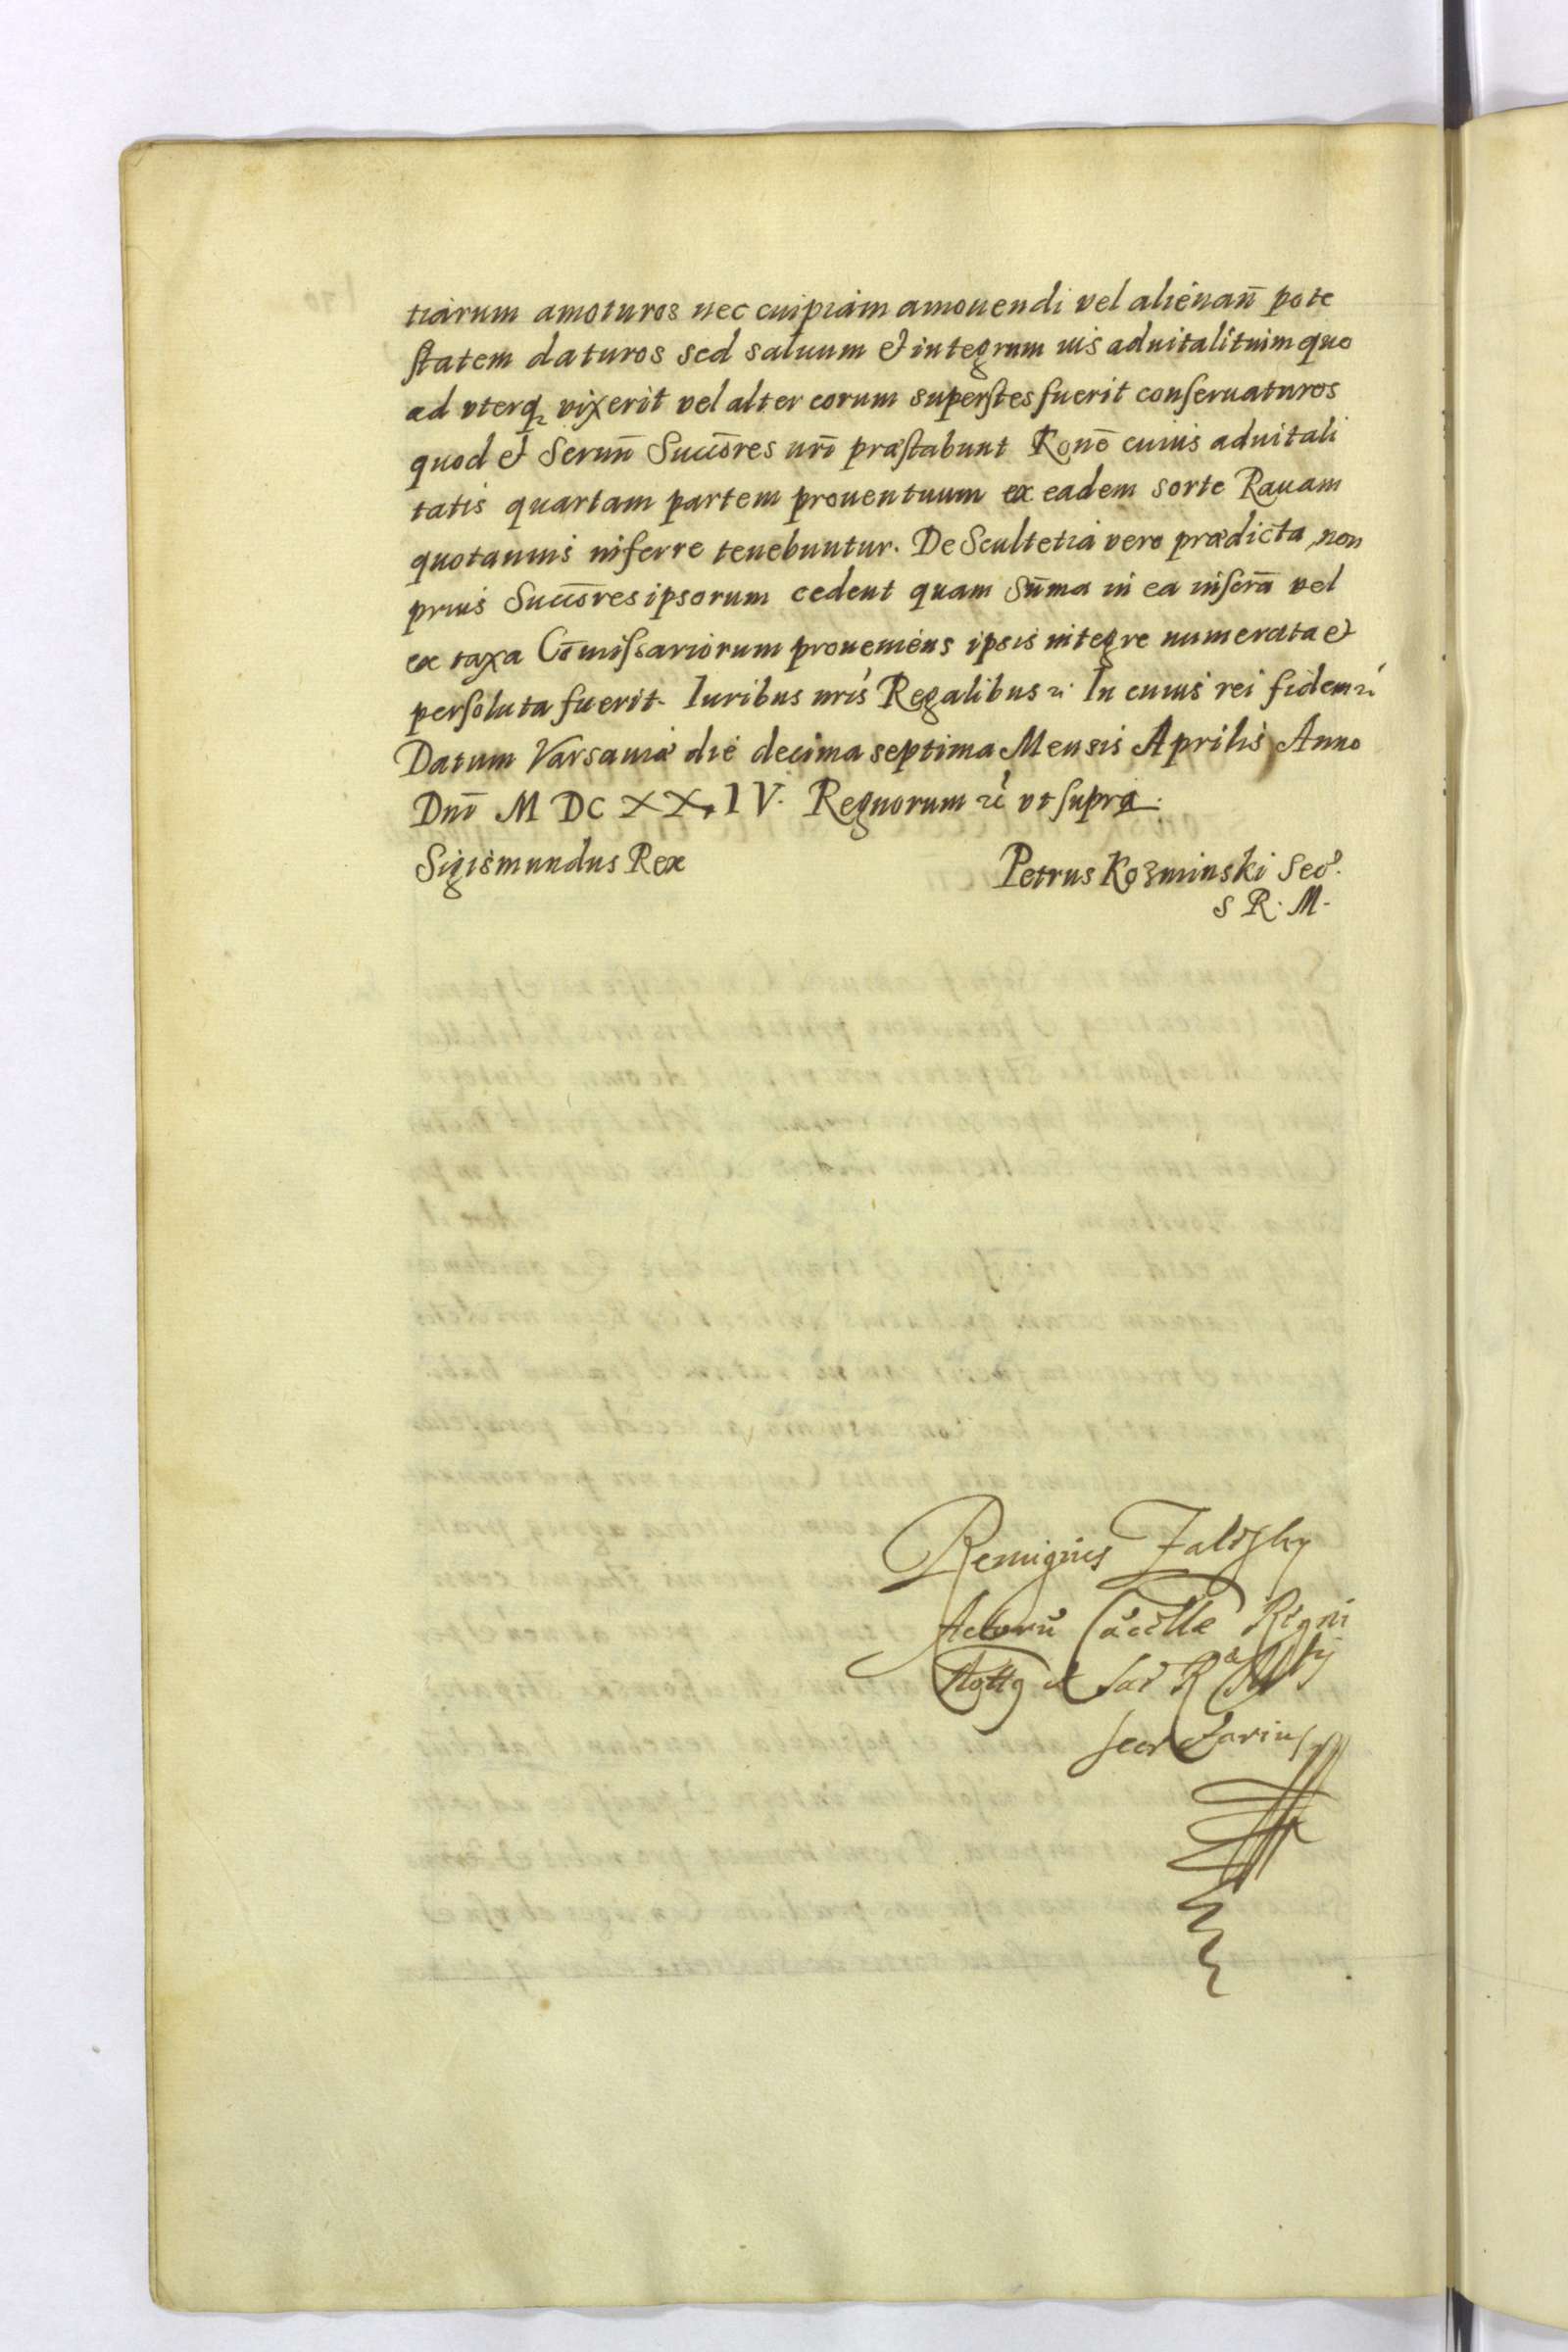 tiarum amoturos nec cuipiam amouendi vel alienan̄ pote
statem daturos sed saluum et integrum ius aduitalituim quo
ad vterq₃ vixerit vel alter eorum superstes fuerit conseruaturos
quod et Serun̄ Succōres nrī præstabunt Ronē cuius aduitali
tatis quartam partem prouentuum ex eadem sorte Rauam
quotannis inferre tenebuntur. De Scultetia vero prædicta non
prius Succōres ipsorum cedent quam Sūma in ea inscrā vel
ex taxa Cōmissariorum proueniens ipsis integre numerata et
persoluta fuerit. Iuribus nrīs Regalibus etc. In cuius rei fidem etc.
Datum Varsauiæ die decima septima Mensis Aprilis Anno
Dnī M DC XX, IV. Regnorum etc. vt supra.
Sigismundus Rex Petrus Kozminski Sec.
S R. M.
Remigius Zaleſky
Actorū Cācelle Regni
Nottq et Sac Rᵃ Mtis
Secretarius